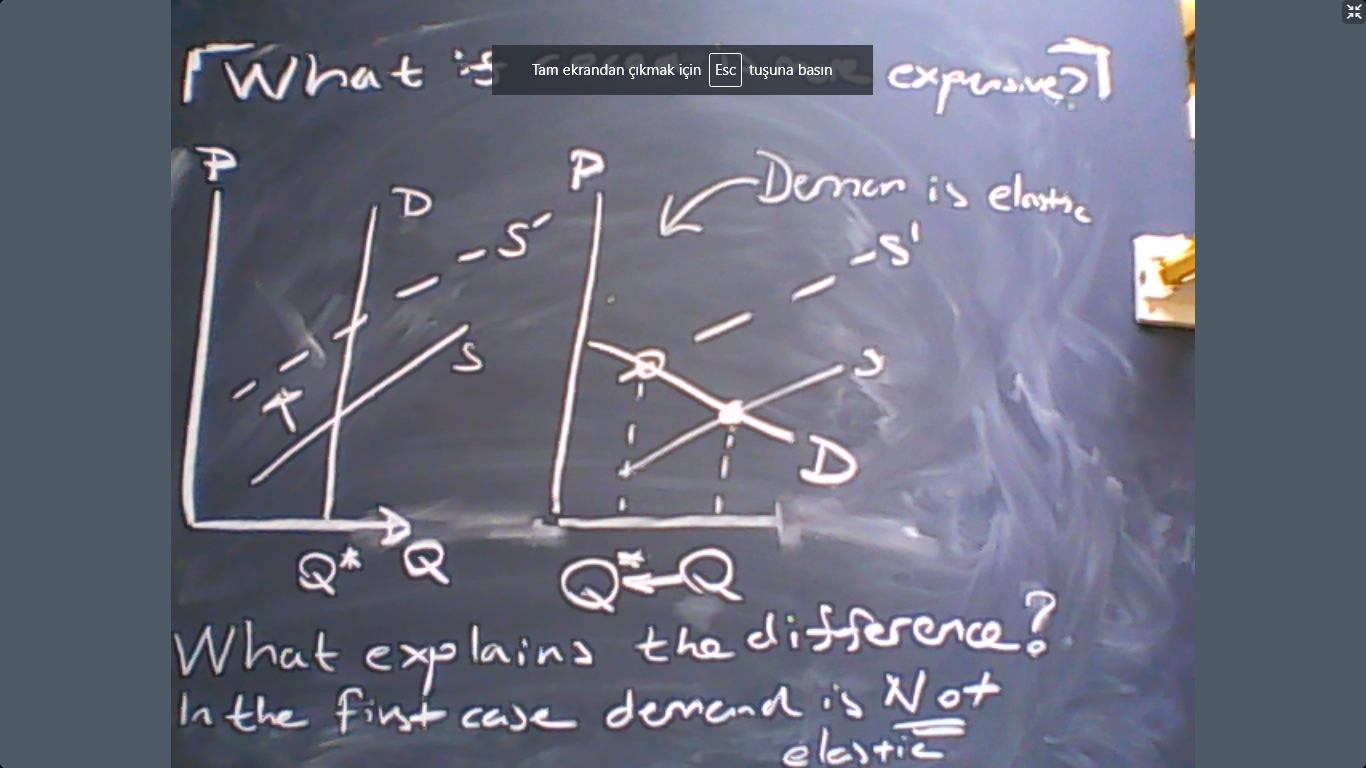 What is expensive?
Tam ekrandan çıkmak için Esc tuşuna basın
P
D
S'
S
Q*
Q
P
Deman is elastic
S'
S
D
Q* Q
What explains the difference?
In the first case demand is Not
elastic